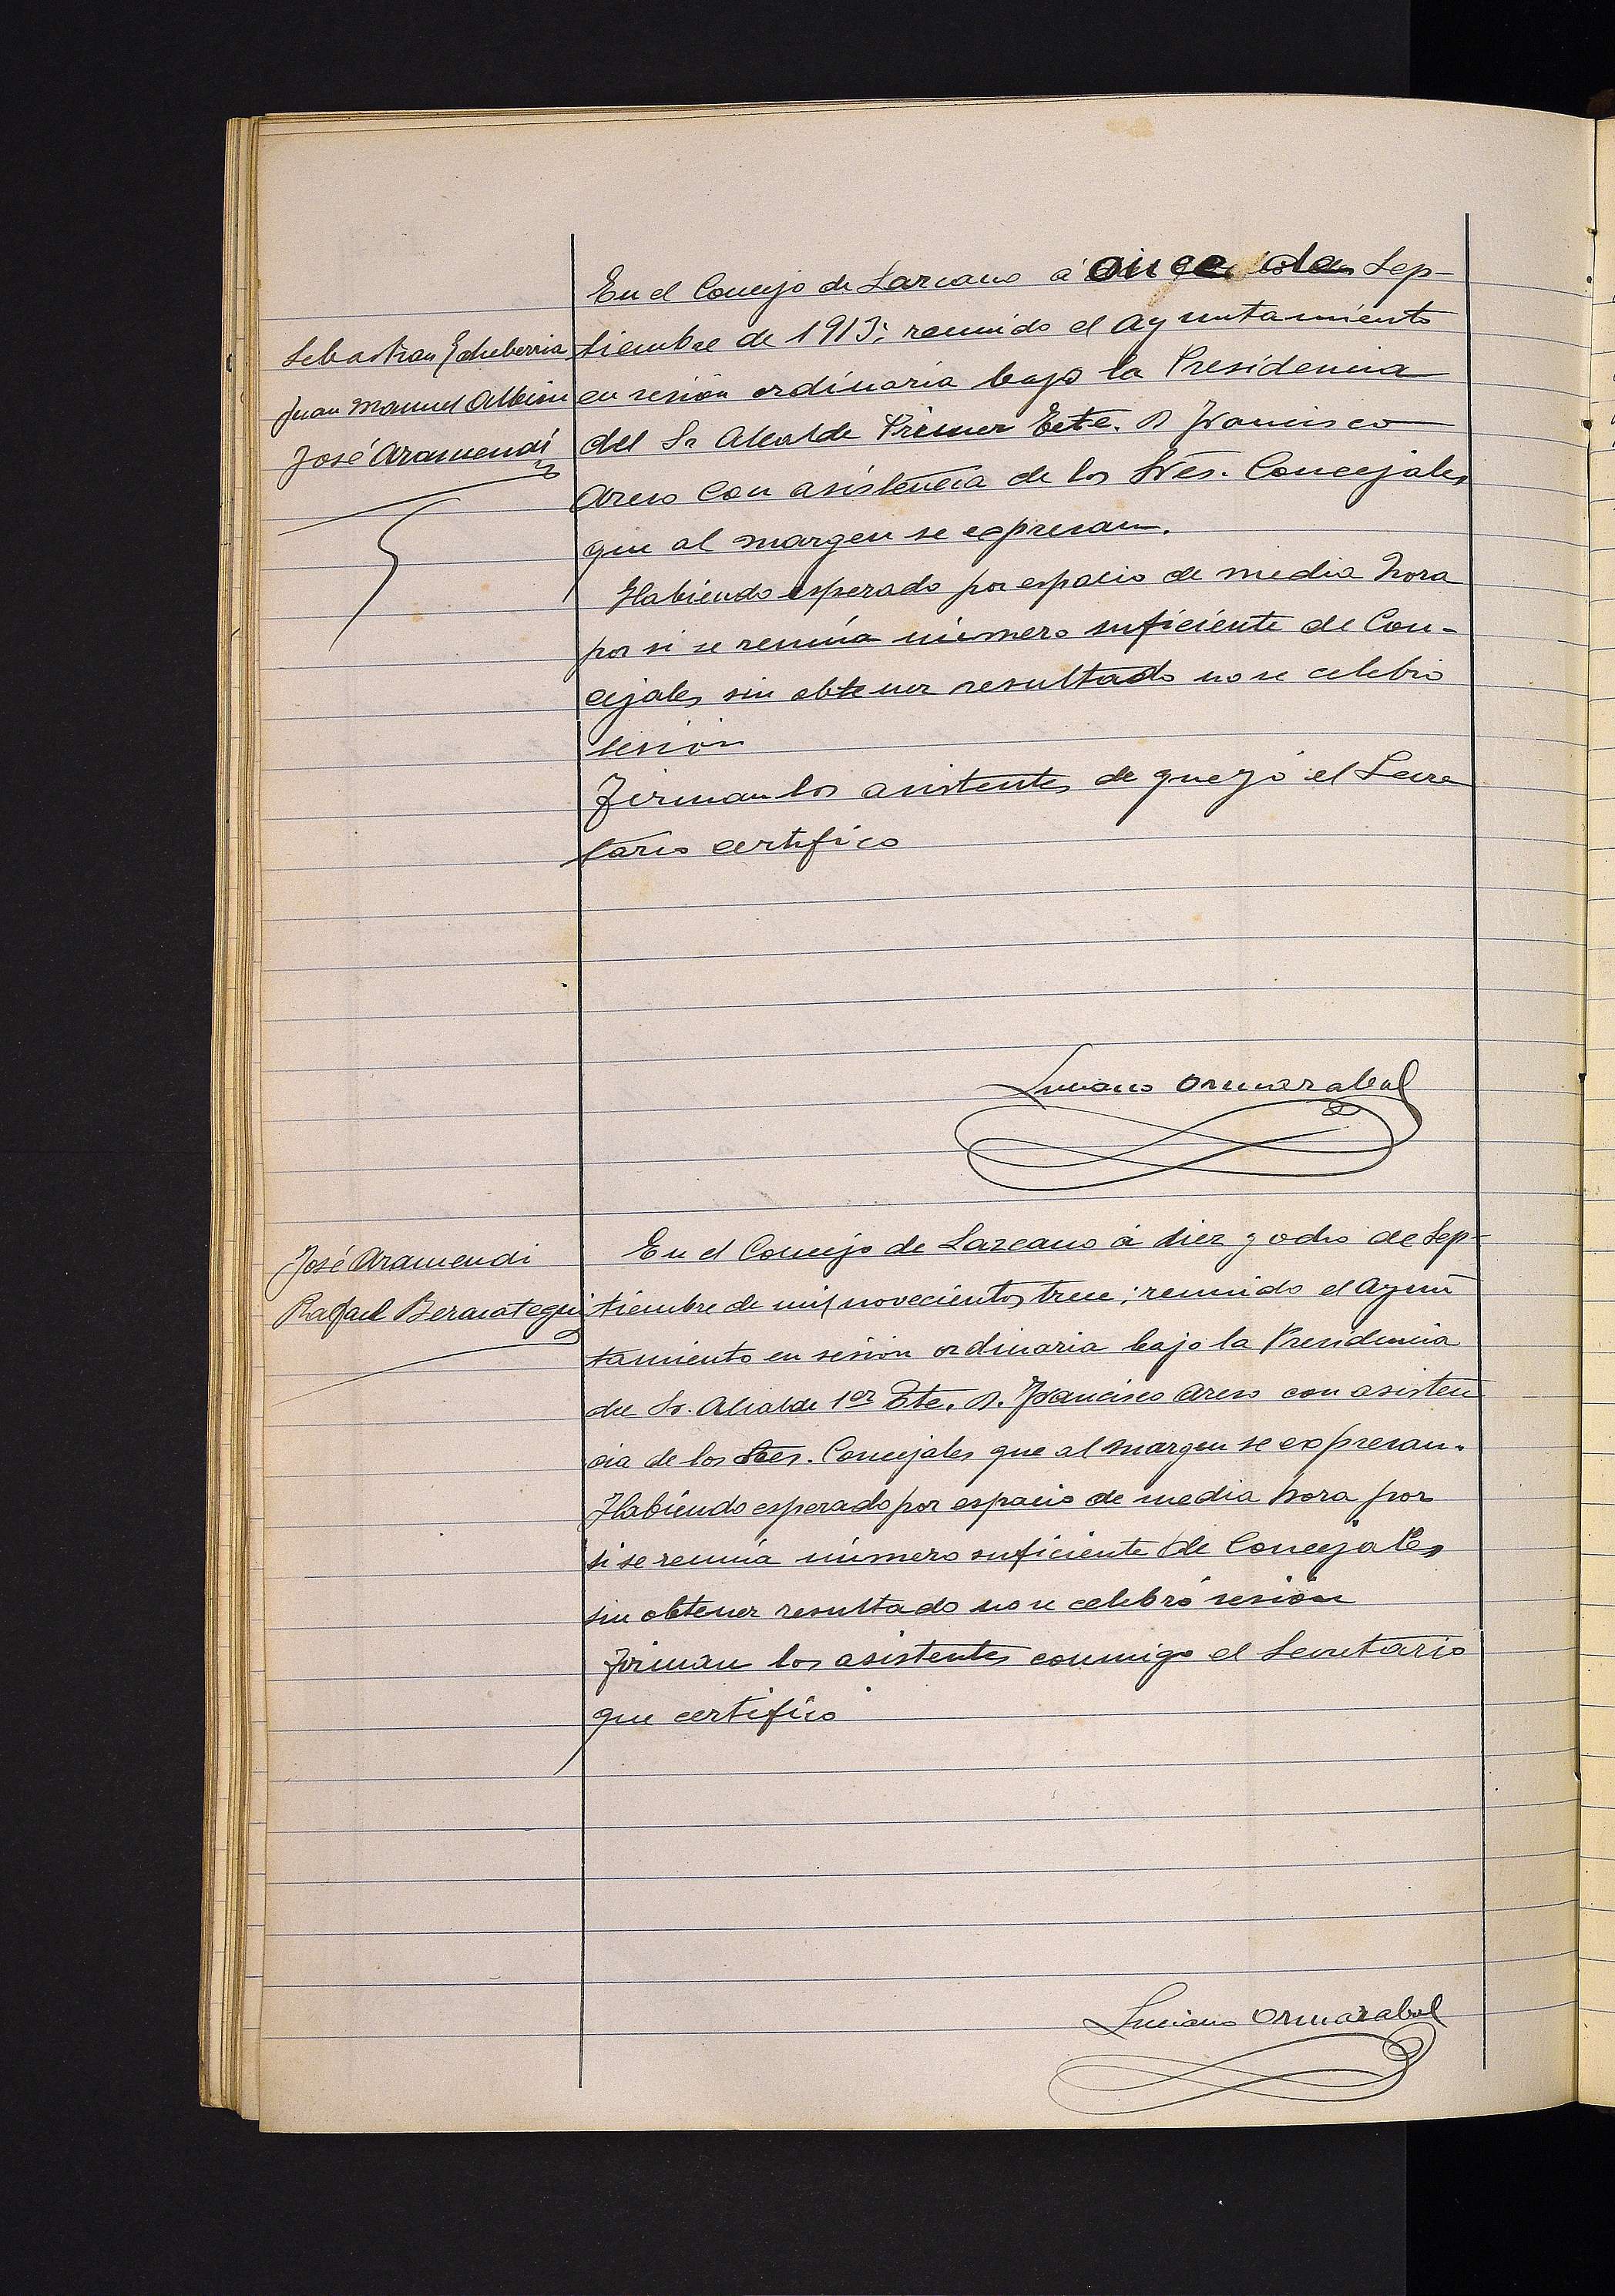 En el Concejo de Lazcano á once de Sep-
Sebastian Echeberria
Juan Manuel Albisu
José Aramendi
tiembre de 1913; reunido el Ayuntamiento
en sesión ordinaria bajo la Presidencia
del Sr Alcalde Primer Tete. D Francisco
Areso con asistencia de los Sres. Concejales
que al margen se expresan.
Habiendo esperado por espacio de media hora
por si se reunía número suficiente de Con-
cejales sin obtener resultado no se celebró
sesión
Firman los asistentes de que yó el Secre
tario certifico
Luciano Ormazabal
José Aramendi
Rafael Bernategui
En el Concejo de Lazcano á diez y ocho de Sep-
tiembre de mil novecientos trece; reunido el Ayun
tamiento en sesión ordinaria bajo la Presidencia
del Sr. Alcalde 1er Tte. D. Francisco Areso con asisten
cia de los Sres. Concejales que al margen se expresan.
Habiendo esperado por espacio de media hora por
si se reunia número suficiente de Concejales
sin obtener resultado no se celebró sesión
Firman los asistentes conmigo el Secretario
que certifico
Luciano Ormazabal